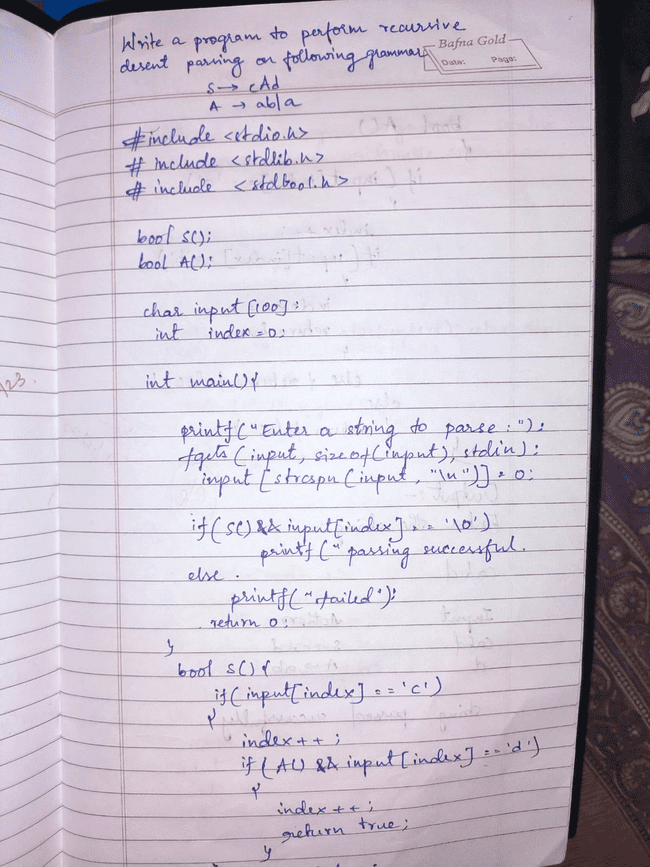 Write a program to perform recursive
desent parsing on following grammar
Bafna Gold
Date: Page:
S → cAd
A → ab|a
#include <stdio.h>
# include <stdlib.h>
# include <stdbool.h>
bool S();
bool A();
char input [100];
int index = 0;
int main(){
printf("Enter a string to parse : ");
fgets (input, sizeof(input), stdin);
input [strcspn (input, "\n")] = 0;
if( S() && input[index] == '\0')
printf (" parsing successful.
else.
printf("failed");
return 0;
}
bool S(){
if( input[index] == 'c')
{
index++;
if( A() && input[index] == 'd')
{
index++;
return true;
}